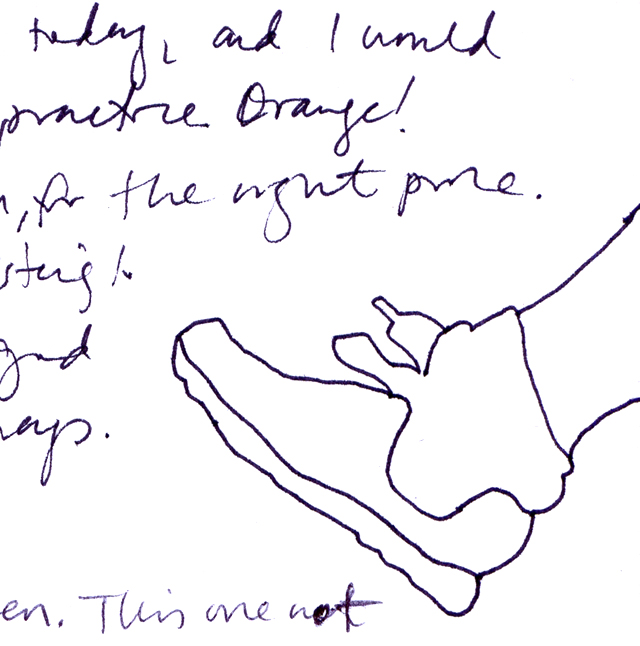 today, and I would
practice Orange!
, for the right price.
sting!
good
ways.
en. This one not